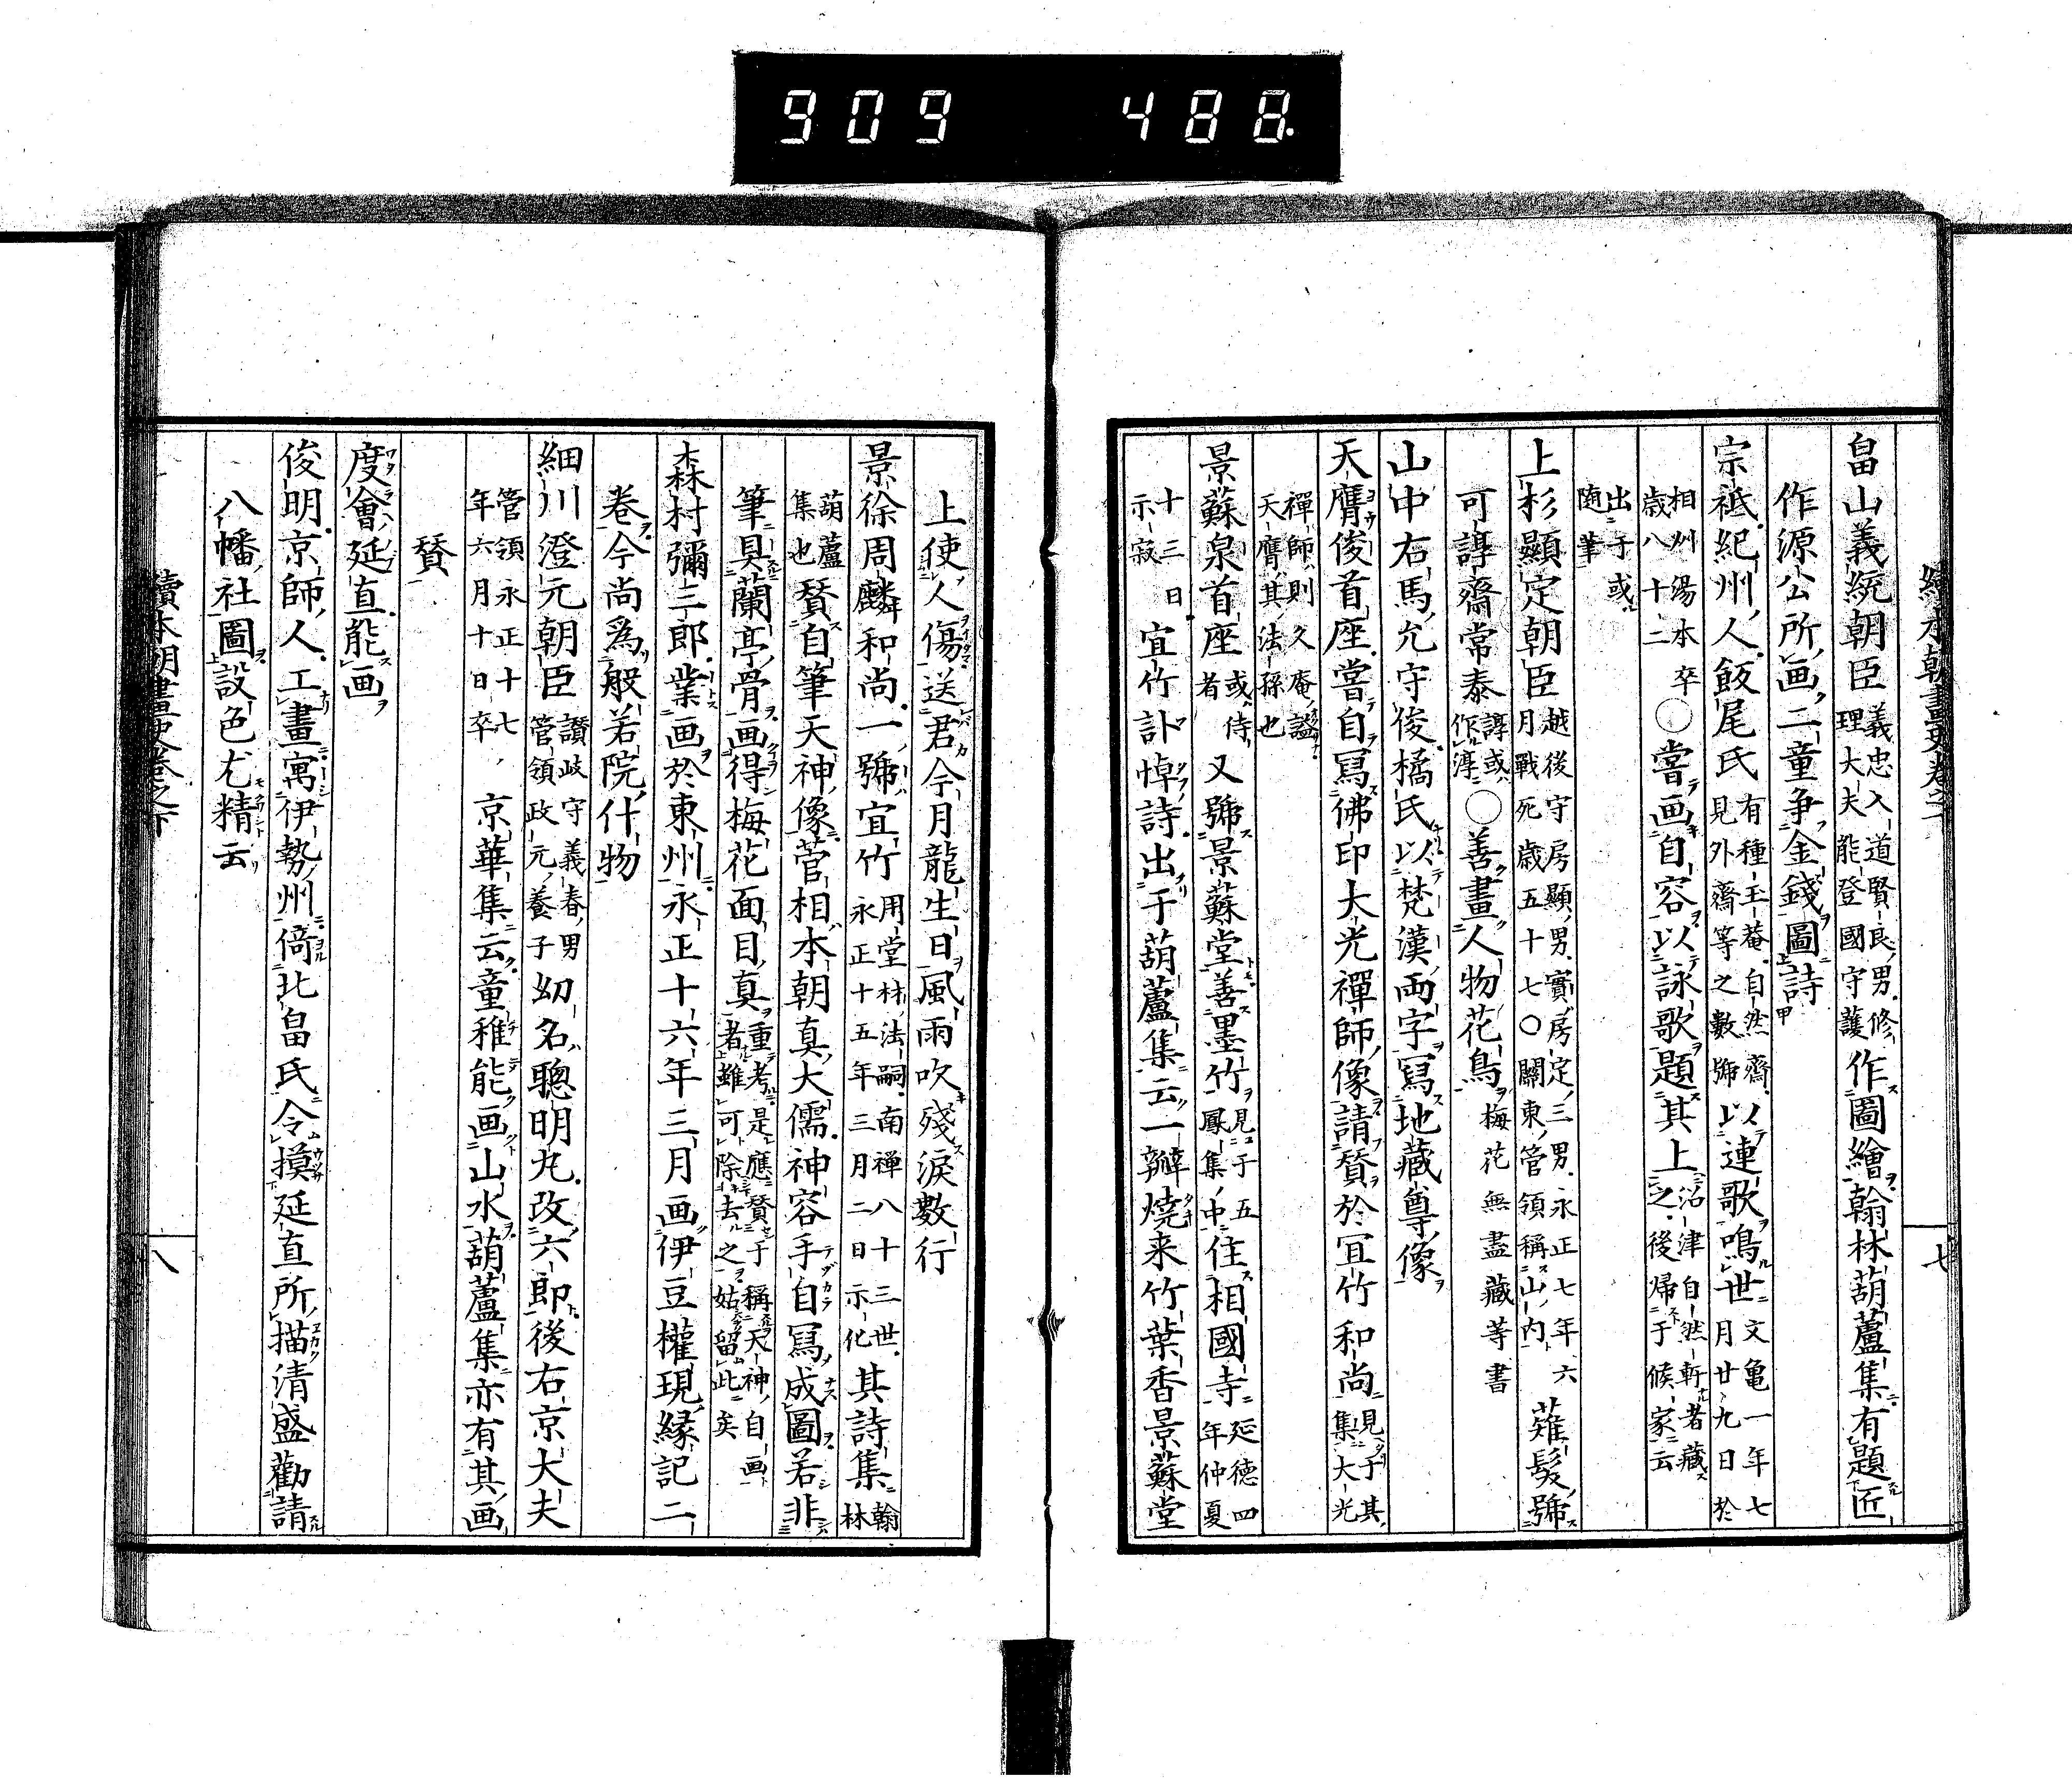 909 488
續本朝畫史卷之下
七
畠山義統朝臣義忠入道賢良男修理大夫能登國守護作圖繪翰林葫蘆集有題匠
作源公所画二童争金錢圖詩
宗祗紀州人飯尾氏有種玉菴自然齋見外齋等之數號以連歌鳴世文亀一年七月廿九日於
相州湯本卒歳八十二○嘗画自容以詠歌題其上沼津自然軒者藏之後帰于候家云
出于或随筆
上杉顯定朝臣越後守房顯男實房定三男永正七年六月戰死歳五十七○關東管領稱山内薙髮號
可諄齋常泰諄或作淳○善畫人物花鳥梅花無盡藏等書
山中右馬允守俊橘氏以梵漢両字寫地藏尊像
天膺俊首座嘗自寫佛印大光禪師像請賛於宜竹和尚見于其集大光
禪師則久庵謚天膺其法孫也
景蘇泉首座或侍者又號景蘇堂善墨竹見于五鳳集中住相國寺延徳四年仲夏
十三日示寂宜竹訃悼詩出于葫蘆集云一瓣燒来竹葉香景蘇堂
上使人傷送君今月龍生日風雨吹殘淚數行
景徐周麟和尚一號宜竹用堂材法嗣南禅八十三世永正十五年三月二日示化其詩集翰林
葫蘆集也賛自筆天神像菅相本朝真大儒神容手自寫成圖若非
筆具蘭亭骨画得梅花面目真重考是應賛于稱天神自画者雖可除去之姑留此矣
森村彌三郎業画於東州永正十六年三月画伊豆權現縁記二
巻今尚為般若院什物
細川澄元朝臣讃岐守義春男管領政元養子幼名聰明丸改六郎後右京大夫
管領永正十七年六月十日卒京華集云童稚能画山水葫蘆集亦有其画
賛
度會延直能画
俊明京師人工畫寓伊勢州倚北畠氏令摸延直所描清盛勸請
八幡社圖設色尤精云
續本朝畫史卷之下
八